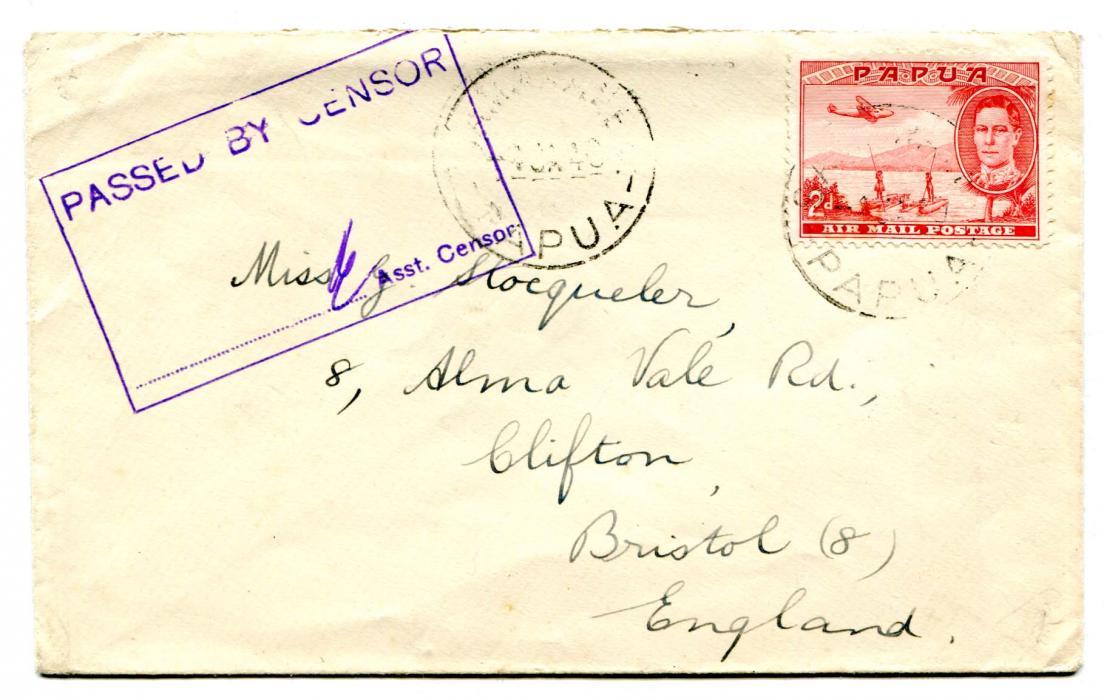 PASSED BY CENSOR
Asst. Censor.
PAPUA
PAPUA
2d
AIR MAIL POSTAGE
PAPUA
Miss G. Stocqueler,
8, Alma Vale Rd.,
Clifton,
Bristol (8)
England.